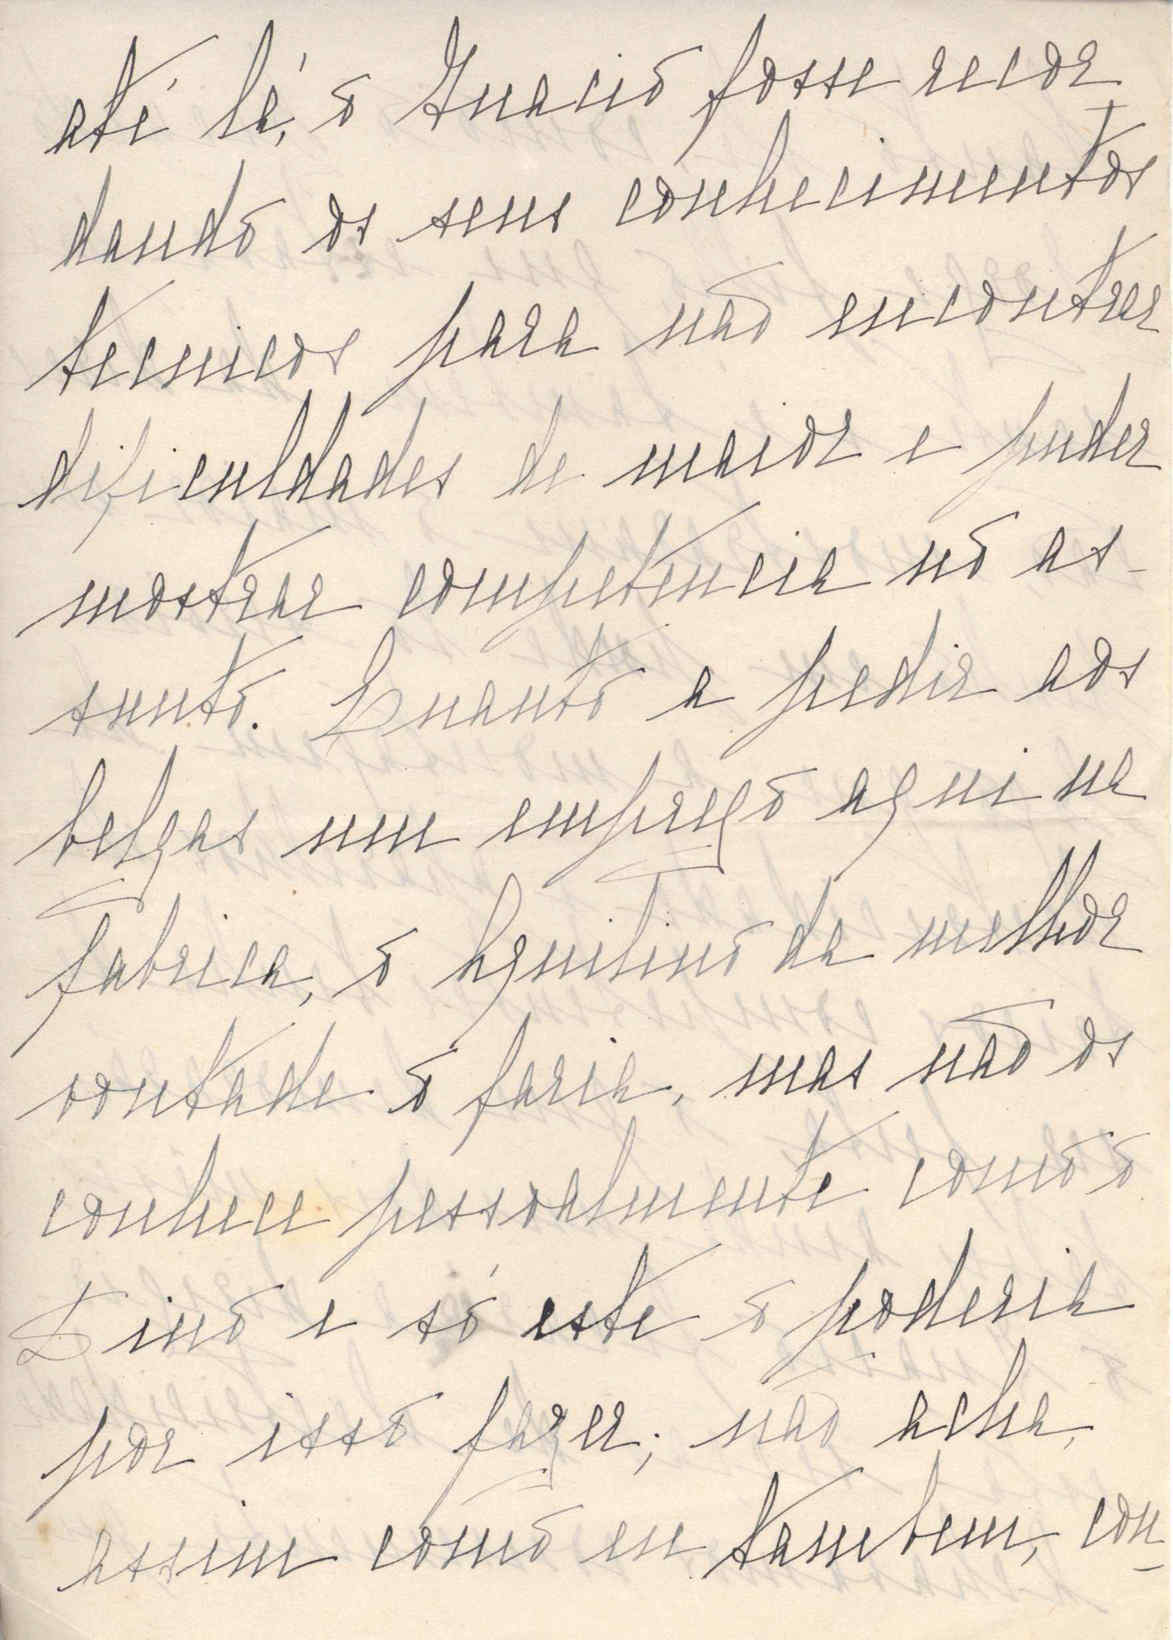 até lá, o Ignacio fosse recor-
dando os seus conhecimentos
tecnicos para não encontrar
dificuldades de maior e puder
mostrar competencia no as-
sunto. Quanto a pedir aos
belgas um emprego aqui na
fabrica, o Aquilino da melhor
vontade o faria, mas não os
conhece pessoalmente como o
Dino e só este o poderia
por isso fazer; não acha,
assim como eu tambem, con-